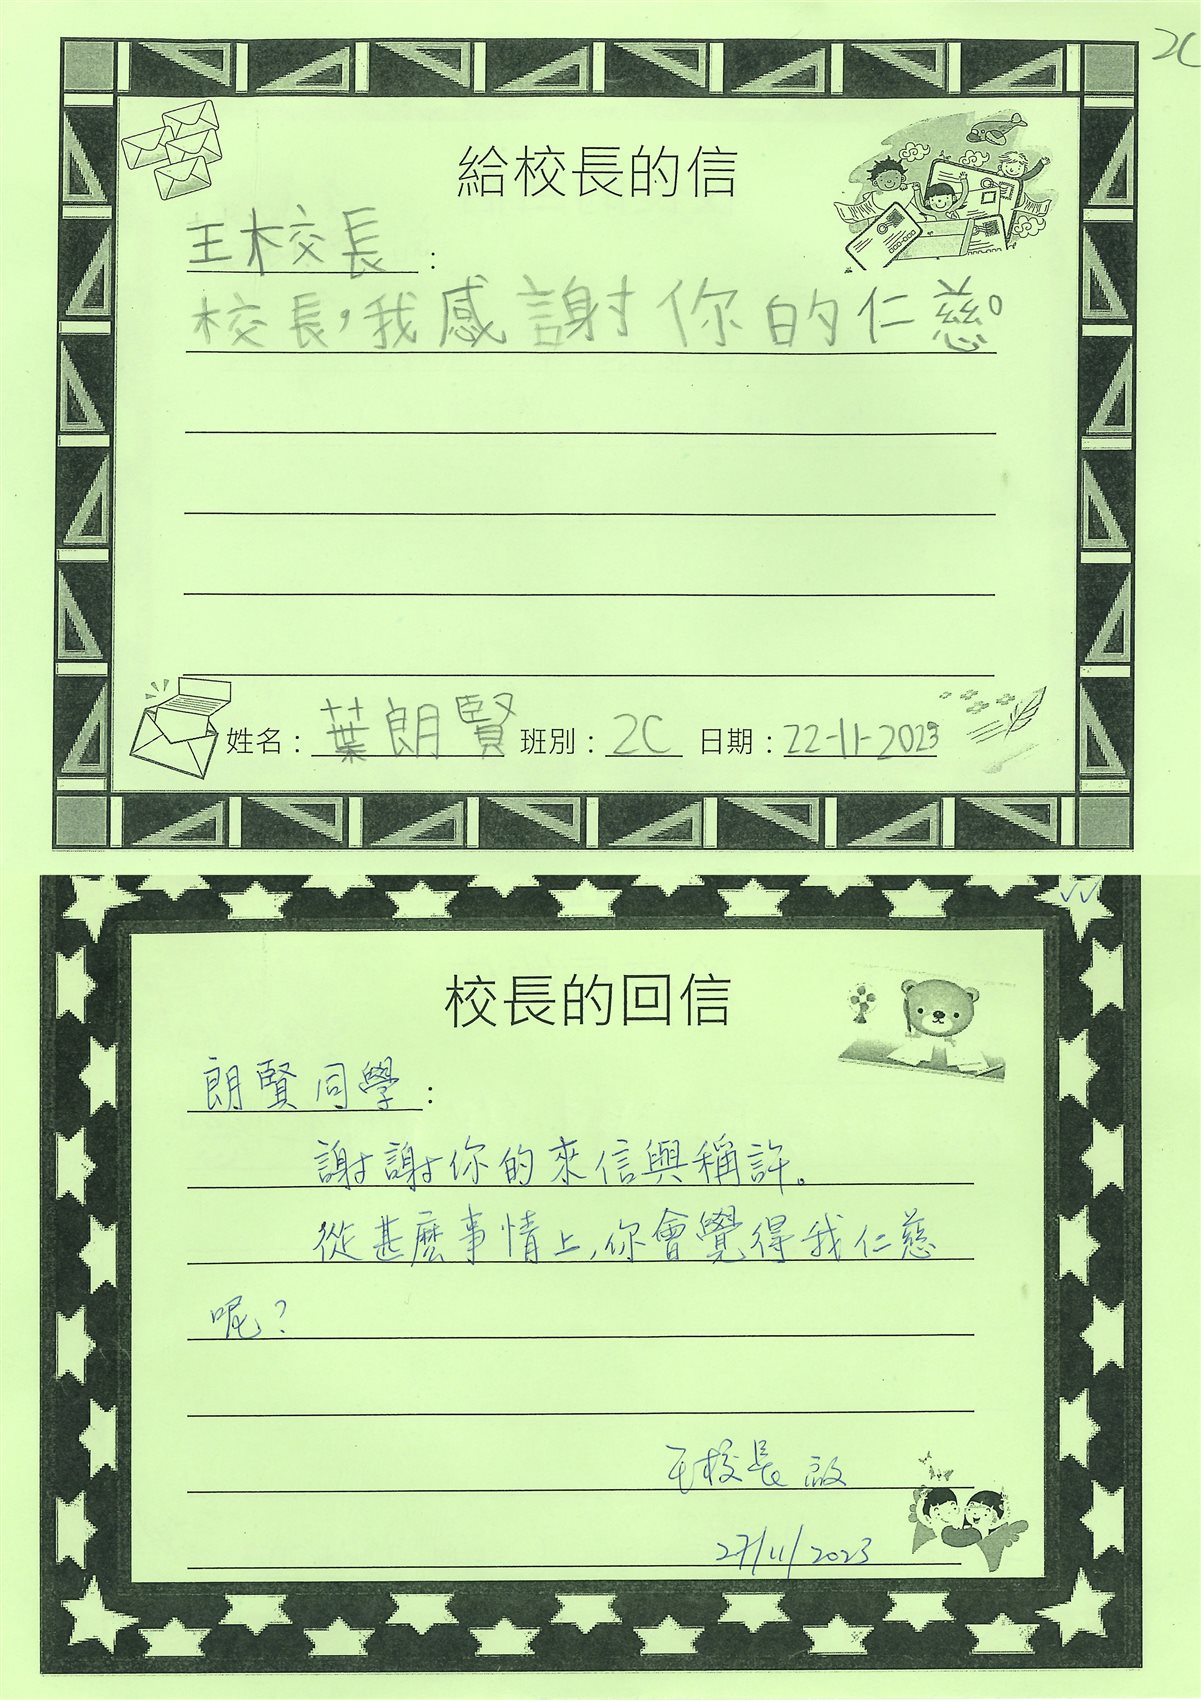 2C
給校長的信
王校長：
校長，我感謝你的仁慈。
姓名：葉朗賢 班別：2C 日期：22-11-2023
校長的回信
朗賢同學：
謝謝你的來信與稱許。
從甚麼事情上，你會覺得我仁慈
呢？
王校長啟
27/11/2023